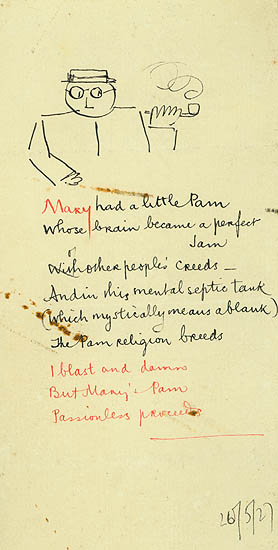 Mary had a little Pam
Whose brain became a perfect
Jam
With other people's Creeds —
And in this mental septic tank
(Which mystically means a blank)
The Pam religion breeds
I blast and damn
But Mary's Pam
Passionless proceeds
26/5/27